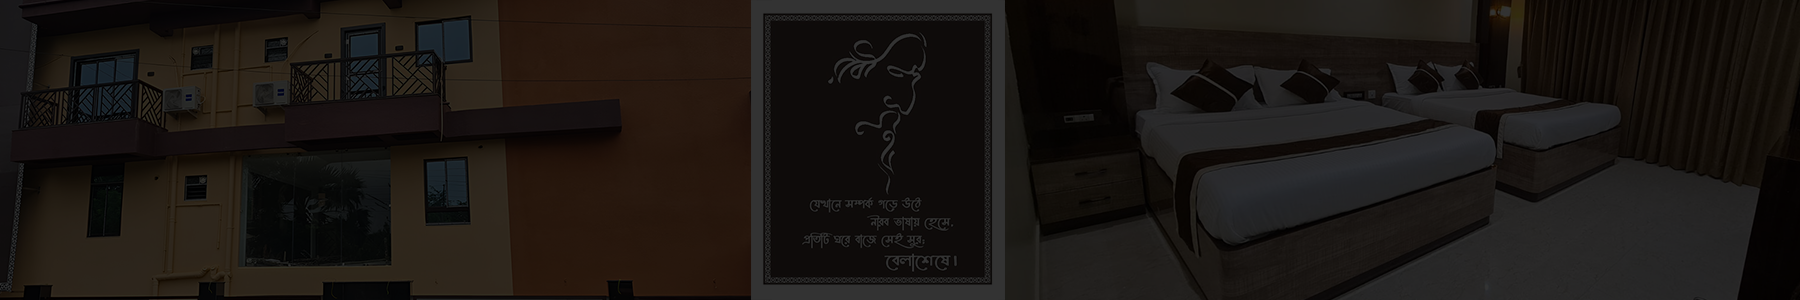 যেখানে সম্পর্ক গড়ে উঠে
নীরব ভাষায় হেসে,
প্রতিটি ঘরে বাজে সেই সুর;
বেলাশেষে।